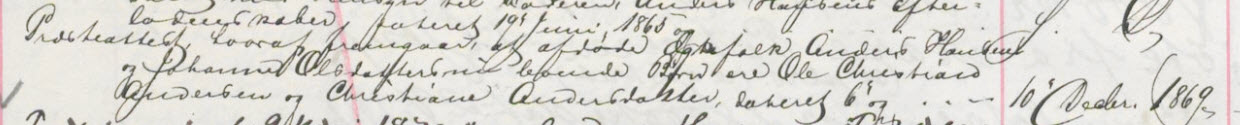 til Faderen, Anders Hansens Efter-
ladenskaber, dateret 19' Juni 1865 og
Præsteattest, hvoraf fremgaaer, at afdøde Ægtefolk Anders Hansens
og Johanne Olsdatters nu levende Børn ere Ole Christian
Andersen og Christiane Andersdatter, dateret 6' og . . — 10' Decbr. 1869,